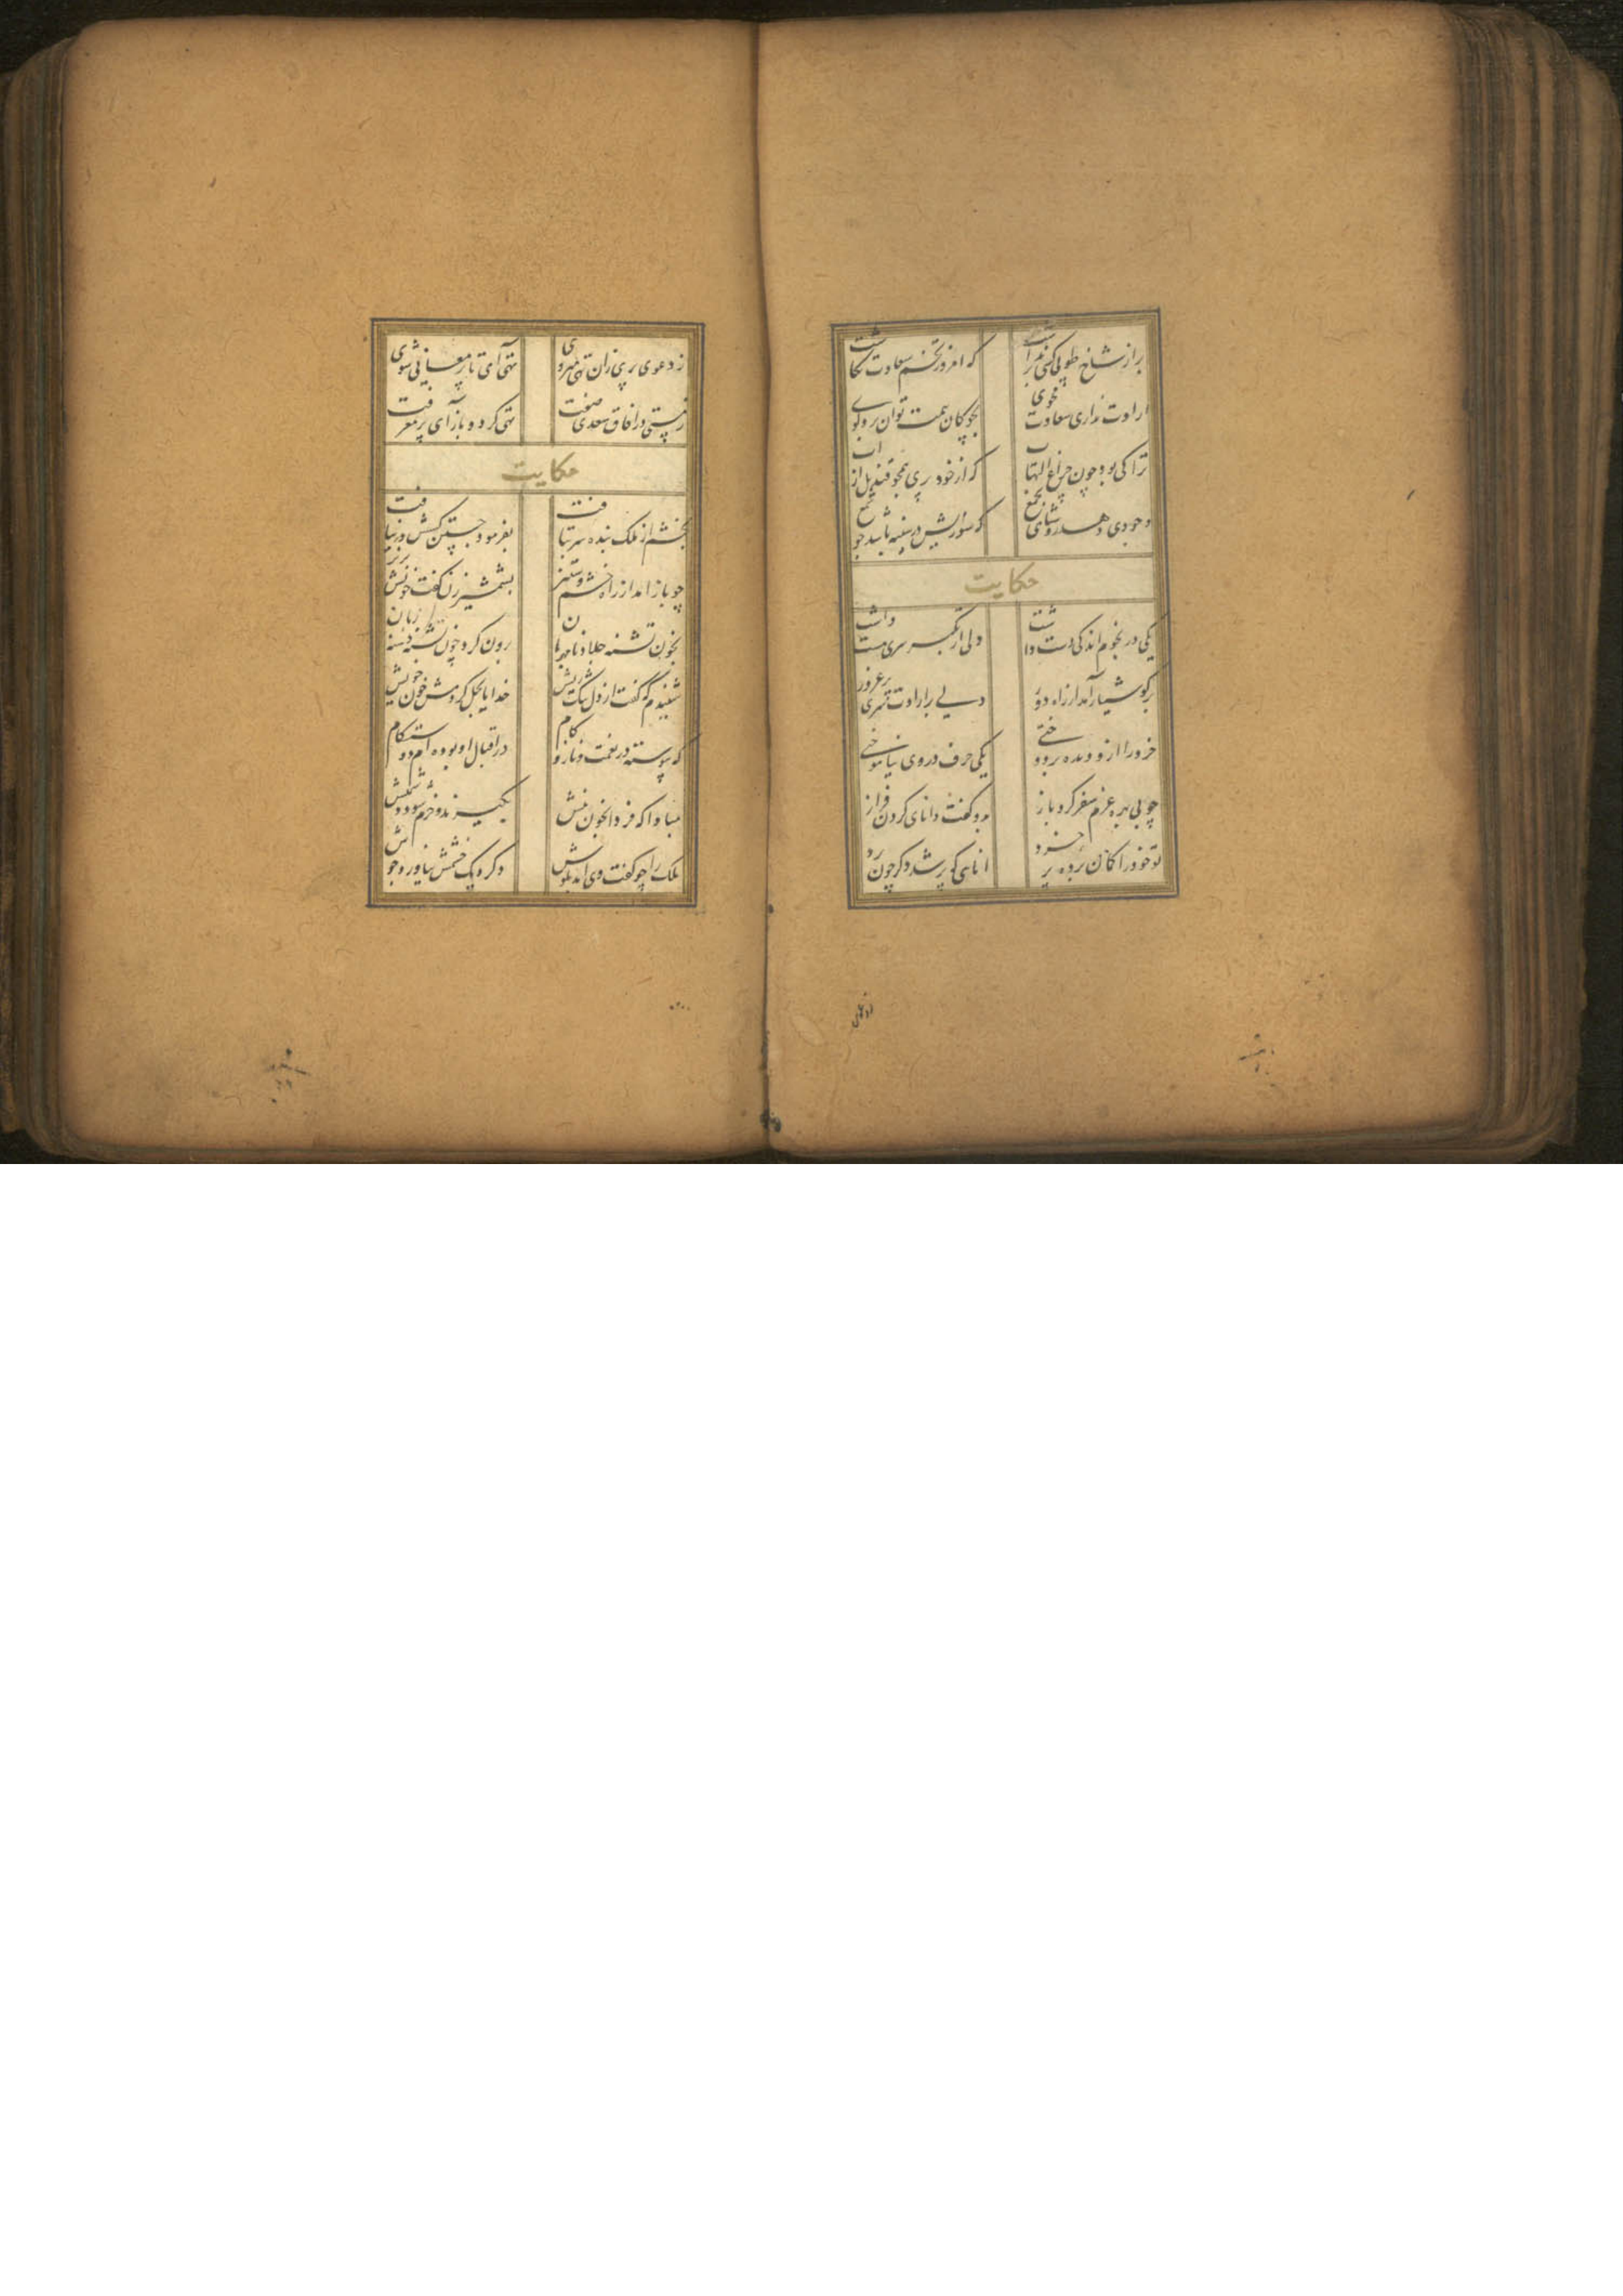 بر از شاخ طوبی کسی برداشت
که امروز تخم سعادت بکاشت
ارادت نداری سعادت مجوی
بچوکان همت توان برد کوی
ترا کی بود چون چراغ التهاب
که از خود پری همچو قندیل از اب
وجودی دهد روشنای بجمع
که سوزایش در سینه باشد چو شمع
حکایت
یکی در نجوم اندکی دست داشت
ولی از تکبر سری مست داشت
بر کوشیار آمد از راه دور
دلی پر ارادت سری پر غرور
خردمند ازو دیده بردوختی
یکی حرف در وی نیاموختی
چو بی بهره عزم سفر کرد باز
بدو کفت دانای کردن فراز
تو خود را کمان برده پر خرد
انایی که پر شد دکر چون برد
ز دعوی پری زان تهی میروی
تهی آی تا پر معانی شوی
ز هستی در افاق سعدی صفت
تهی کرد و باز آی پر معرفت
حکایت
بخشم از ملک بنده سر بتافت
بفرمود جستن کسش در نیافت
چو باز امد از راه خشم و ستیز
بشمشیر زن کفت خونش بریز
بخون تشنه جلاد نامهربان
برون کرد چون تشنه دشنه زبان
شنیدم که کفت از دل تنک ریش
خدایا بحل کردمش خون خویش
که پیوسته در نعمت و ناز و کام
در اقبال او بوده ام دوستکام
مبادا که فردا بخون منش
بکیرند و خرم شود دشمنش
ملک را چو کفت وی امد بکوش
دکر دیک خشمش نیاورد جوش